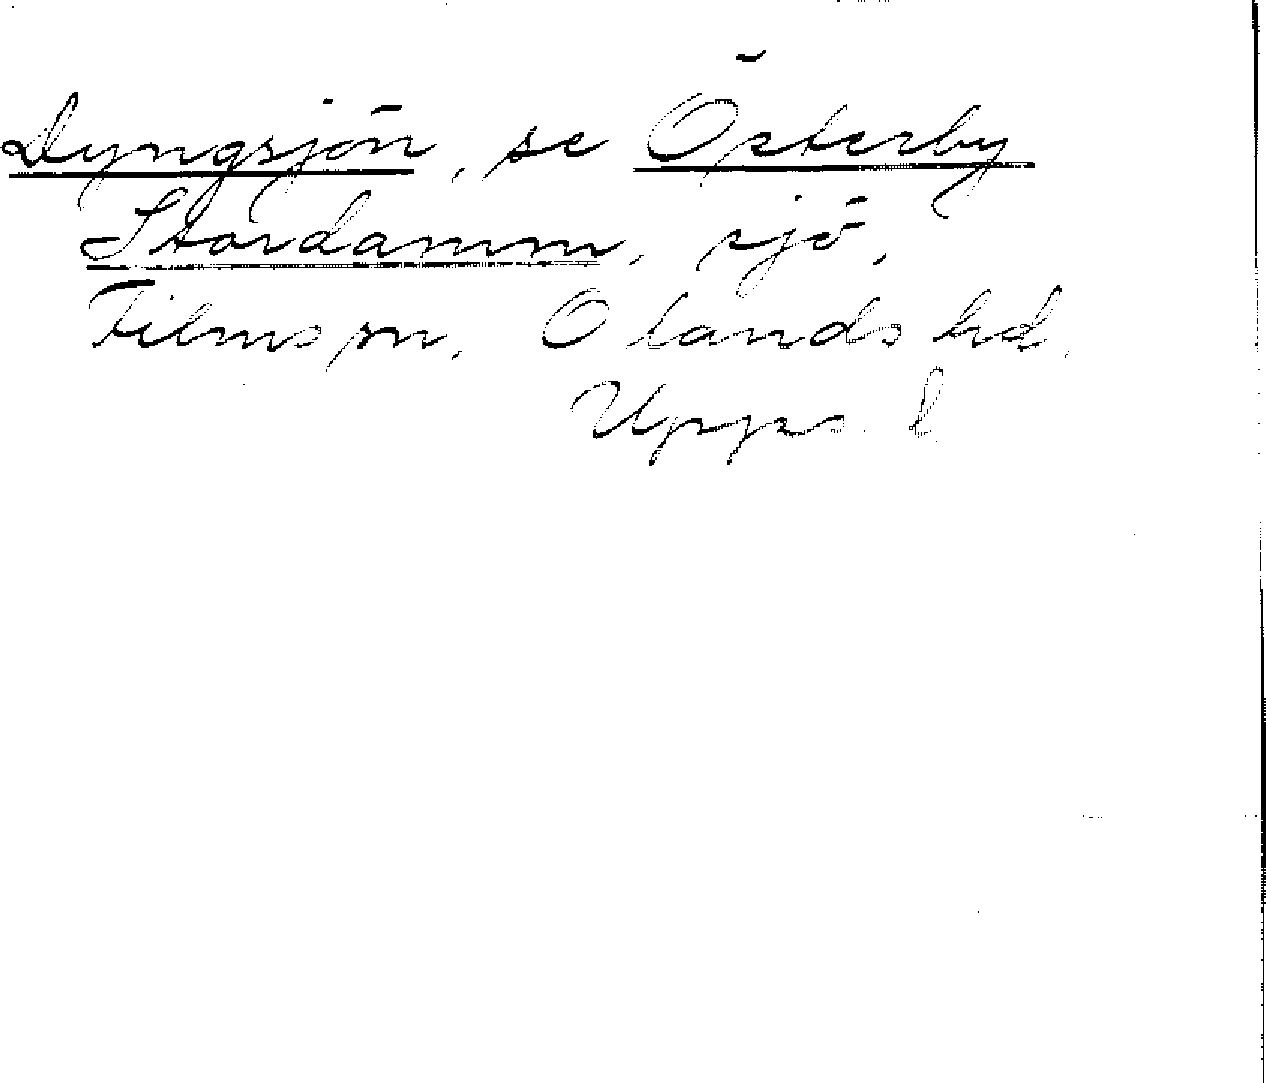 Dyngsjön, se Österby
Stordamm, sjö,
Films sn. Olands hd.
Upps. l